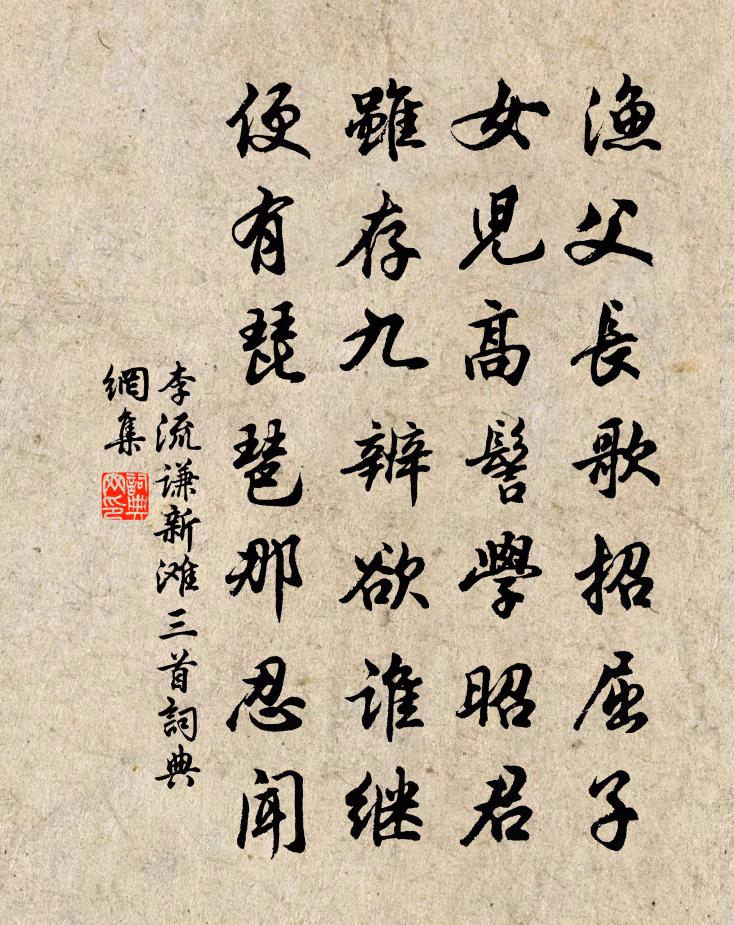 漁父長歌招屈子
女児高髻學昭君
雖存九辨欲誰继
便有琵琶那忍聞
李流谦新滩三首詞典
網集
詞典網印